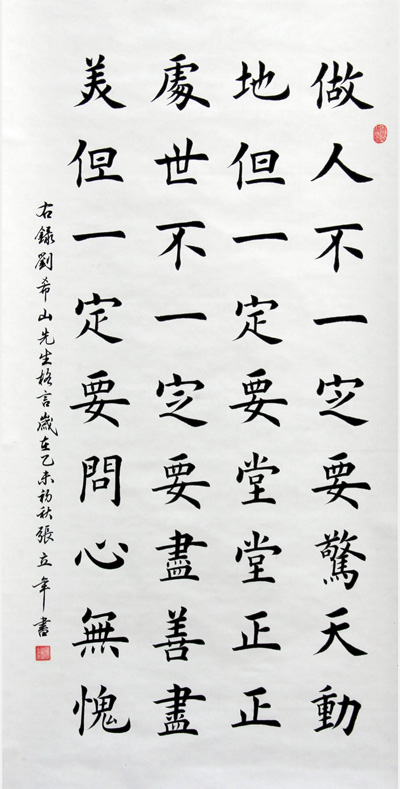 做人不一定要驚天動
地但一定要堂堂正正
處世不一定要盡善盡
美但一定要問心無愧
右錄劉希山先生格言歲在乙未初秋張立年書